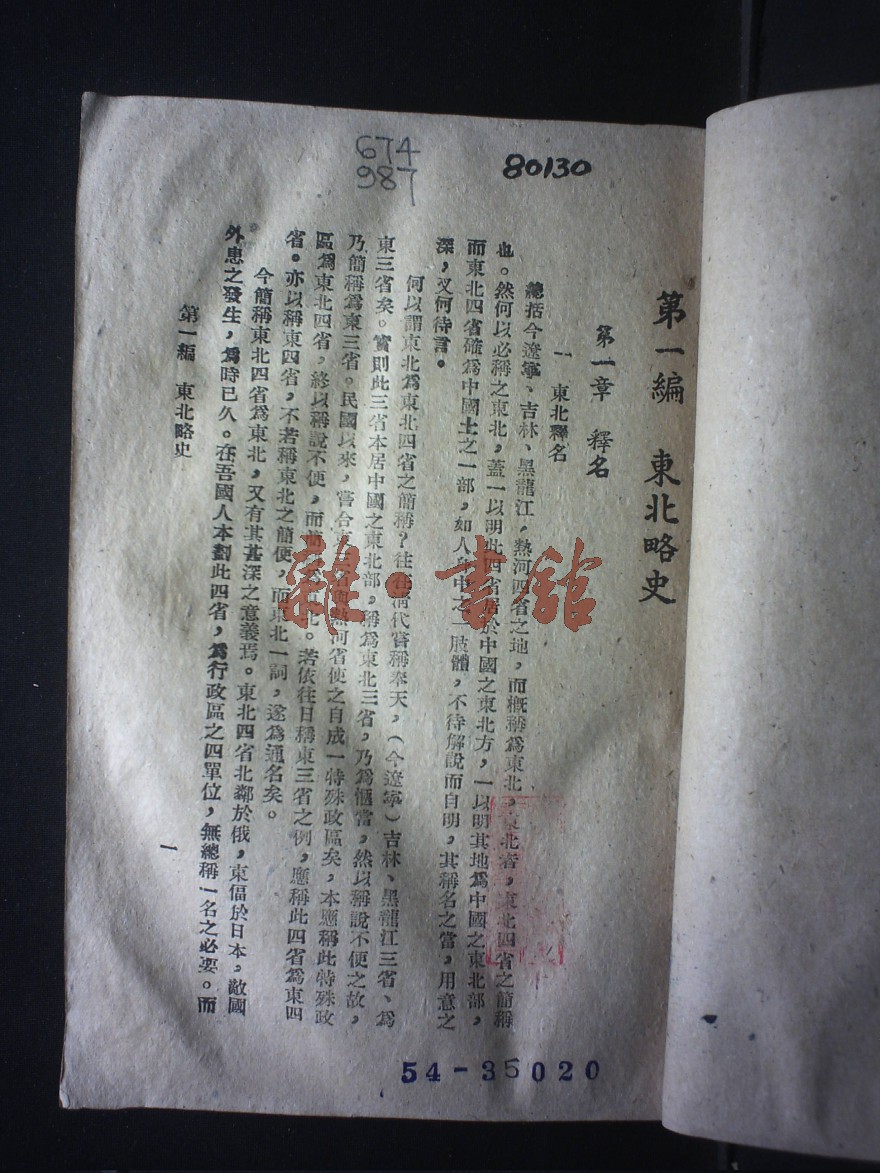 674
987
80130
第一編　東北略史
第一章　釋名
一　東北釋名
總括今遼寧、吉林、黑龍江，熱河四省之地，而概稱爲東北，東北者，東北四省之簡稱
也。然何以必稱之東北，蓋一以明此四省居於中國之東北方，一以明其地爲中國之東北部，
而東北四省確爲中國土之一部，如人身中之一肢體，不待解說而自明，其稱名之當，用意之
深，又何待言。
何以謂東北爲東北四省之簡稱？往在淸代嘗稱奉天，（今遼寧）吉林、黑龍江三省、爲
東三省矣。實則此三省本居中國之東北部，稱爲東北三省，乃爲愜當，然以稱說不便之故，
乃簡稱爲東三省。民國以來，嘗合東三省與熱河省使之自成一特殊政區矣，本應稱此特殊政
區爲東北四省，終以稱說不便，而簡稱東北。若依往日稱東三省之例，應稱此四省爲東四
省。亦以稱東四省，不若稱東北之簡便，而東北一詞，遂爲通名矣。
今簡稱東北四省爲東北，又有其甚深之意義焉。東北四省北鄰於俄，東偪於日本，敵國
外患之發生，爲時已久。在吾國人本劃此四省，爲行政區之四單位，無總稱一名之必要。而
第一編　東北略史
一
雜·書館
54-35020